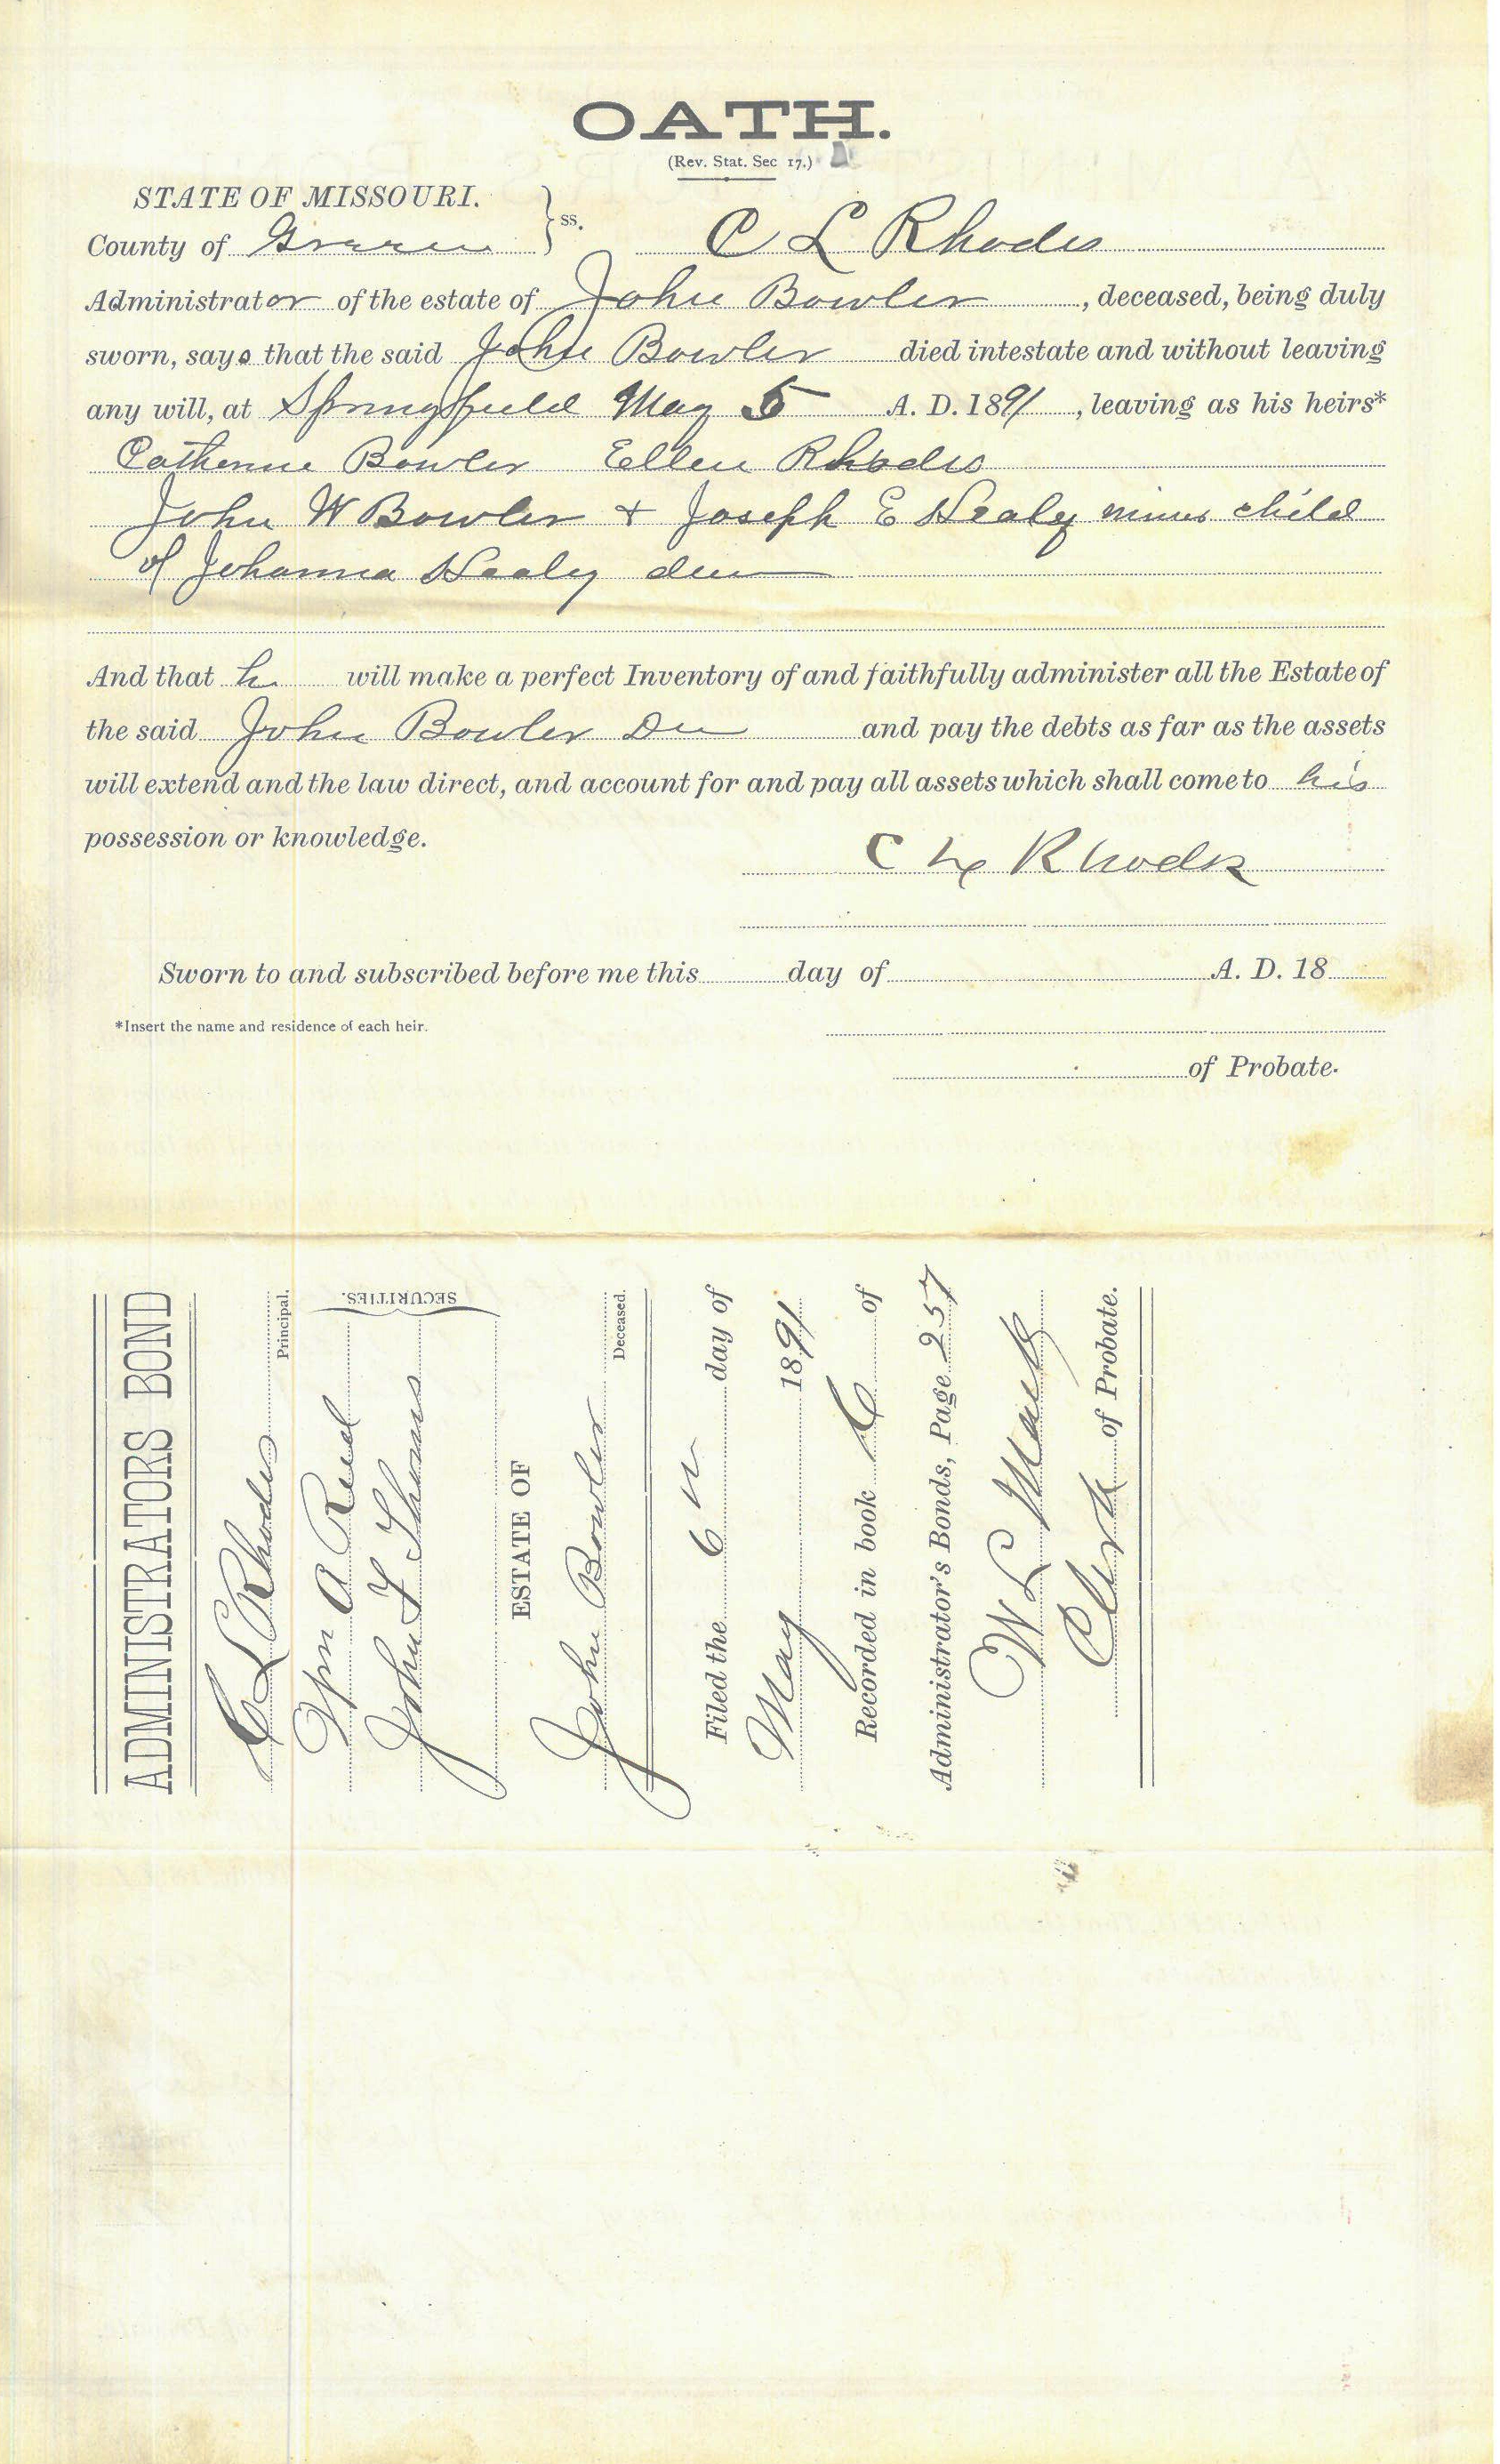 OATH.
(Rev. Stat. Sec 17.)
STATE OF MISSOURI.
County of Greene } ss. C L Rhodes
Administrator of the estate of John Bowler, deceased, being duly
sworn, says that the said John Bowler died intestate and without leaving
any will, at Springfield May 5 A. D. 1891, leaving as his heirs*
Catherine Bowler Ellen Rhodes
John W Bowler + Joseph E Healy minor child
of Johanna Healy
And that he will make a perfect Inventory of and faithfully administer all the Estate of
the said John Bowler and pay the debts as far as the assets
will extend and the law direct, and account for and pay all assets which shall come to his
possession or knowledge.
C L Rhodes
Sworn to and subscribed before me this day of A. D. 18
*Insert the name and residence of each heir.
of Probate.
ADMINISTRATORS BOND
C L Rhodes
Principal.
Wm A Reed
John F
SECURITIES.
ESTATE OF
John Bowler
Deceased.
Filed the 6 day of
May 1891
Recorded in book of
Administrator's Bonds, Page 257
W L
Clerk of Probate.